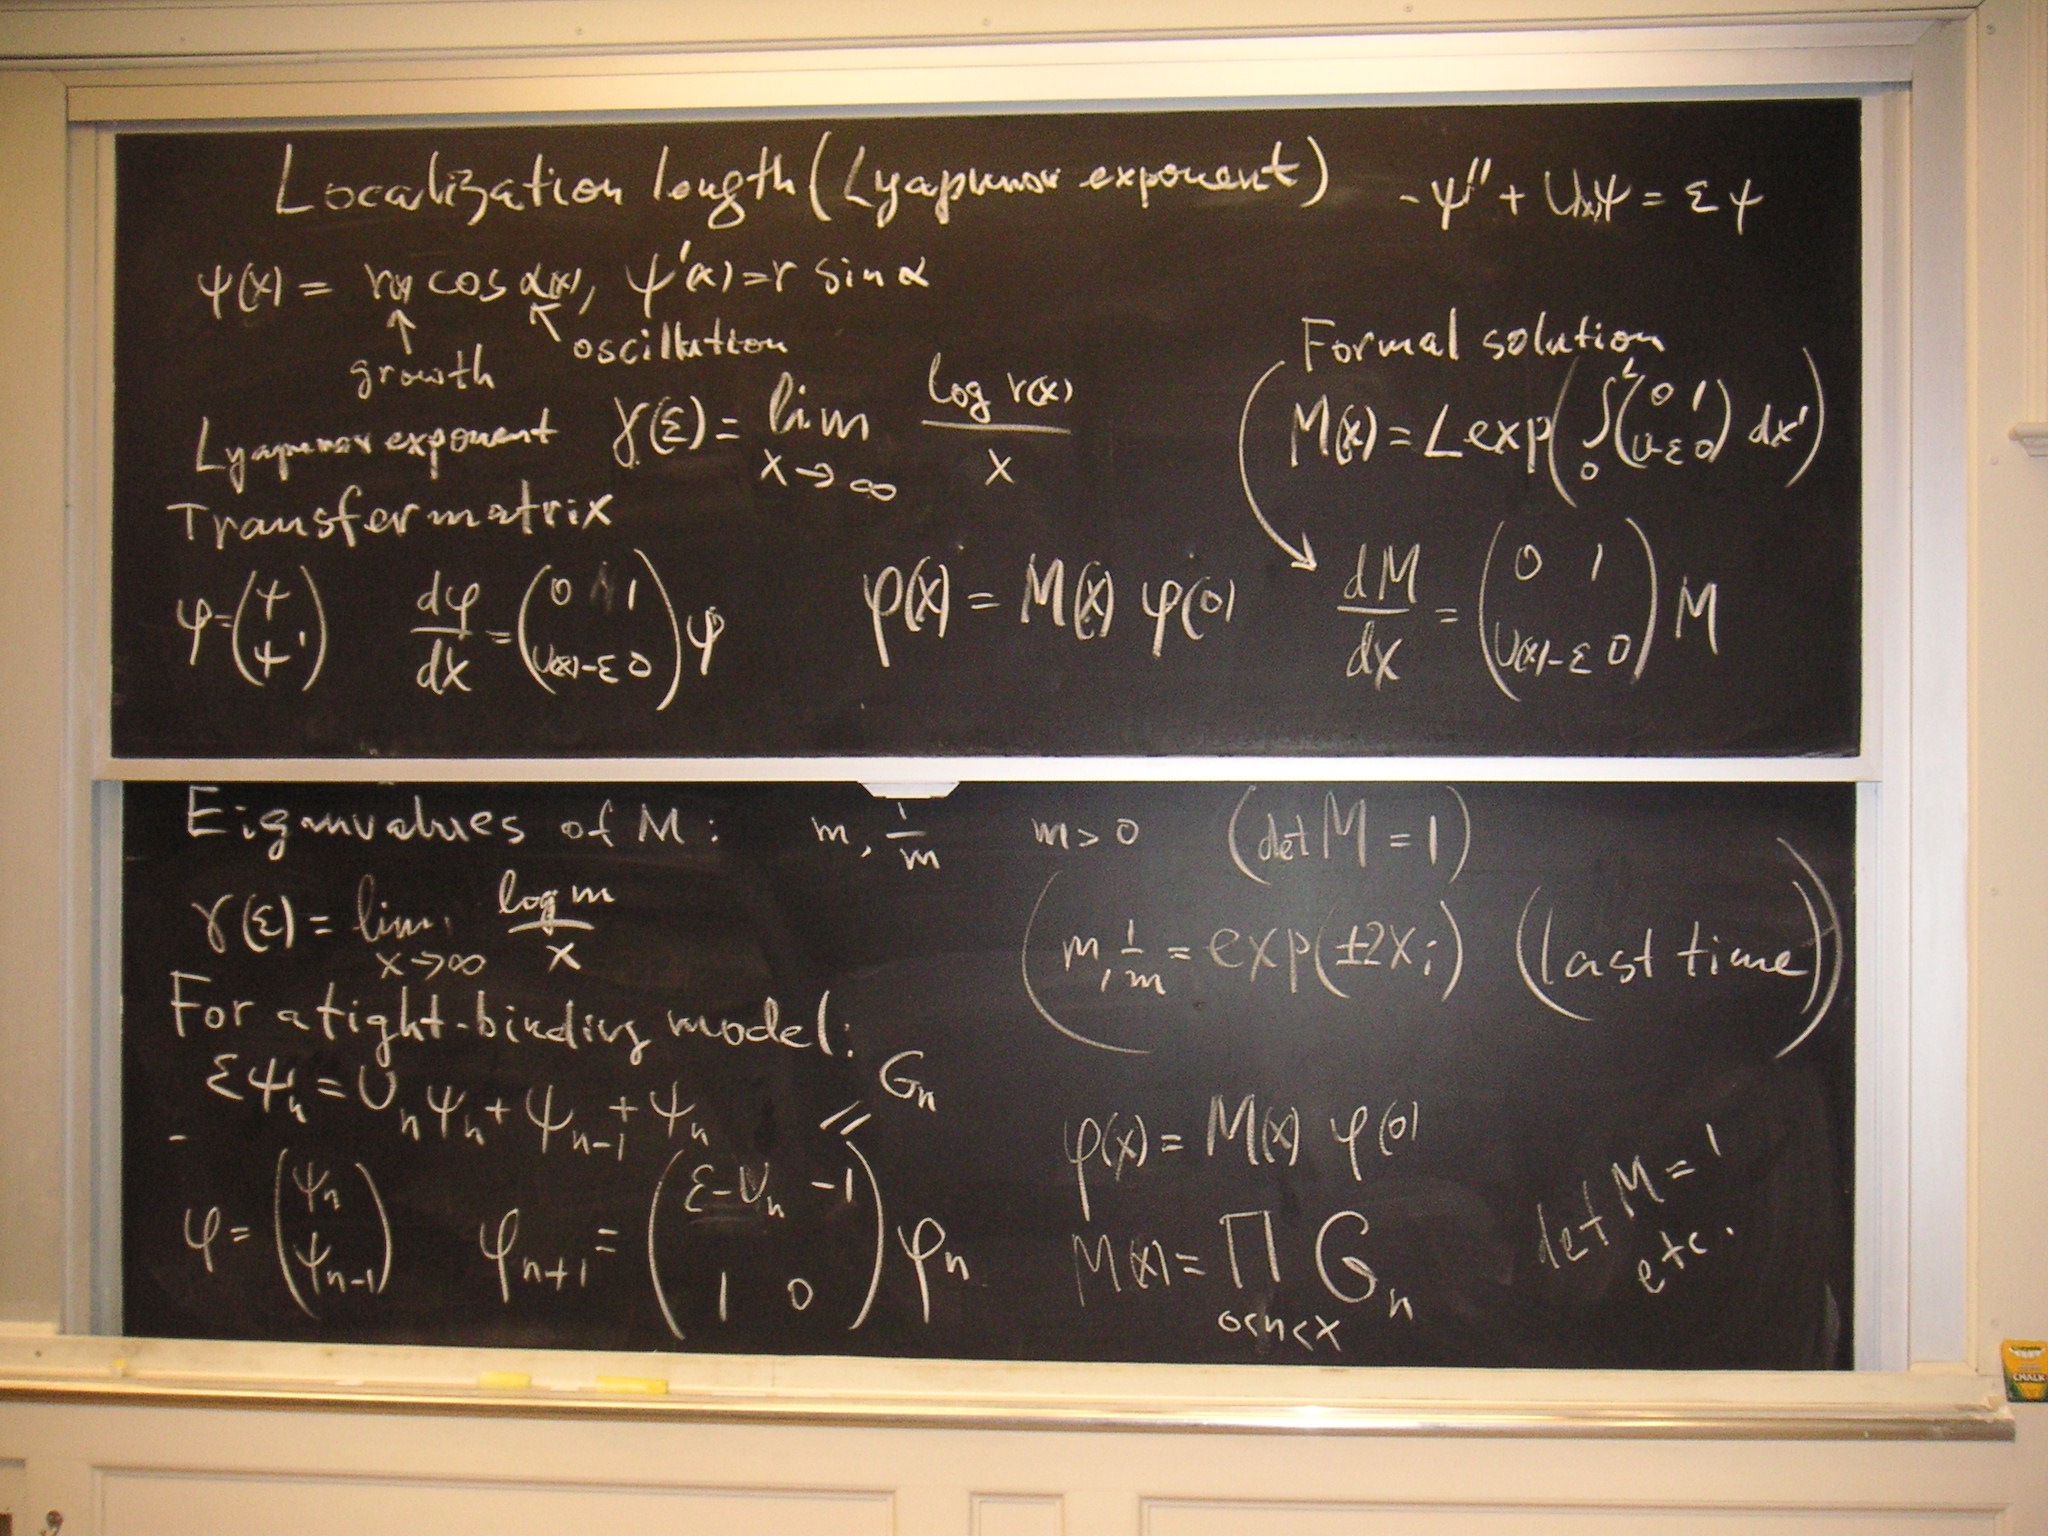 Localization length (Lyapunov exponent)   -ψ'' + U(x)ψ = εψ
ψ(x) = r(x) cos α(x), ψ'(x) = r sin α
↑ growth   ↖ oscillation
Lyapunov exponent   γ(ε) = lim_{x→∞} log r(x) / x
Formal solution
M(x) = L exp( ∫_0^L (0 1; U-ε 0) dx' )
Transfer matrix
φ = (ψ; ψ')   dφ/dx = (0 1; U(x)-ε 0) φ   φ(x) = M(x) φ(0)   dM/dx = (0 1; U(x)-ε 0) M
Eigenvalues of M: m, 1/m   m > 0   (det M = 1)
γ(ε) = lim_{x→∞} log m / x   (m, 1/m = exp(±2xi) (last time))
For a tight-binding model:
εψ_n = U_n ψ_n + ψ_{n-1} + ψ_n   // G_n
φ = (ψ_n; ψ_{n-1})   φ_{n+1} = (ε-U_n -1; 1 0) φ_n
φ(x) = M(x) φ(0)
M(x) = ∏_{0<n<x} G_n
det M = 1
etc.
CHALK